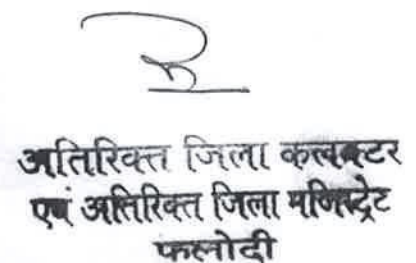 अतिरिक्त जिला कलक्टर
एवं अतिरिक्त जिला मजिस्ट्रेट
फलोदी